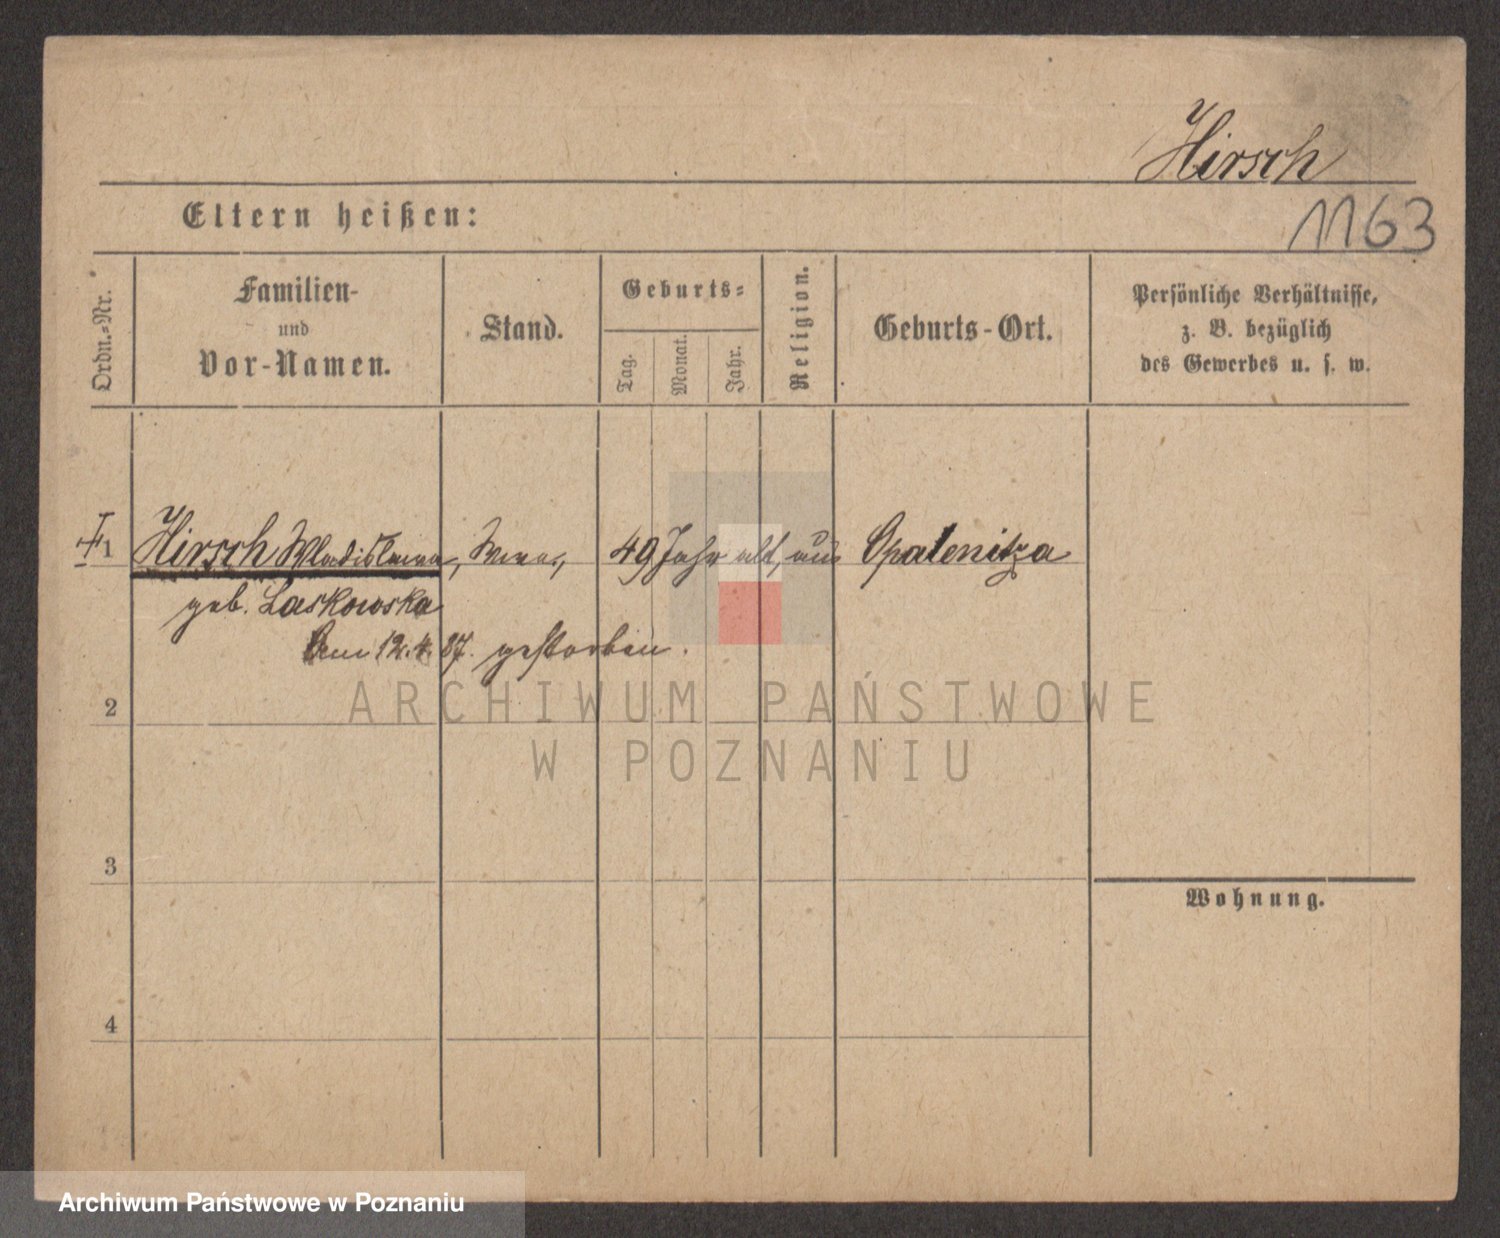 Hirsch
1163
Eltern heißen:
Ordn.-Nr.
Familien-
und
Vor-Namen.
Stand.
Geburts-
Tag.
Monat.
Jahr.
Religion.
Geburts-Ort.
Persönliche Verhältnisse,
z. B. bezüglich
des Gewerbes u. s. w.
1 Hirsch Wladislawa, 49 Jahr alt, aus Opalenitza
geb. Laskowska
Am 12.4.87. gestorben.
2
3
4
Wohnung.
ARCHIWUM PAŃSTWOWE
W POZNANIU
Archiwum Państwowe w Poznaniu